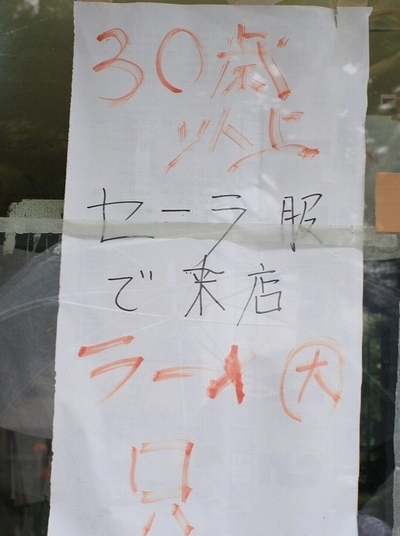 30歳
以上
セーラ服
で来店
ラーメ 大
只